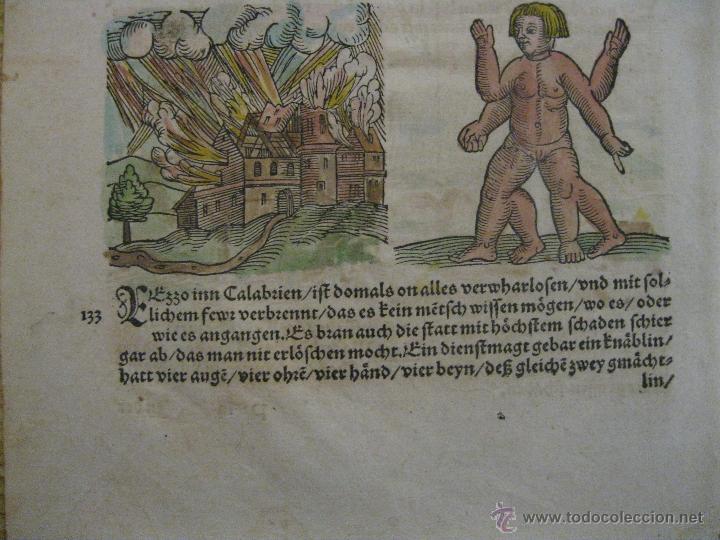 REzzo inn Calabrien/ist domals on alles verwharlosen/vnd mit sol-
133 lichem fewr verbrennt/das es kein mẽtsch wissen mögen/wo es/oder
wie es angangen. Es bran auch die statt mit höchstem schaden schier
gar ab/das man nit erlöschen mocht. Ein dienstmagt gebar ein knäblin/
hatt vier augẽ/vier ohrẽ/vier hånd/vier beyn/deß gleichẽ zwey gmächt-
lin/
© www.todocoleccion.net